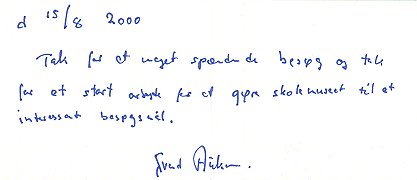 d 15/8 2000
Tak for et meget spændende besøg og tak
for et stort arbejde for at gøre skolemuseet til et
interessant besøgsmål.
Svend